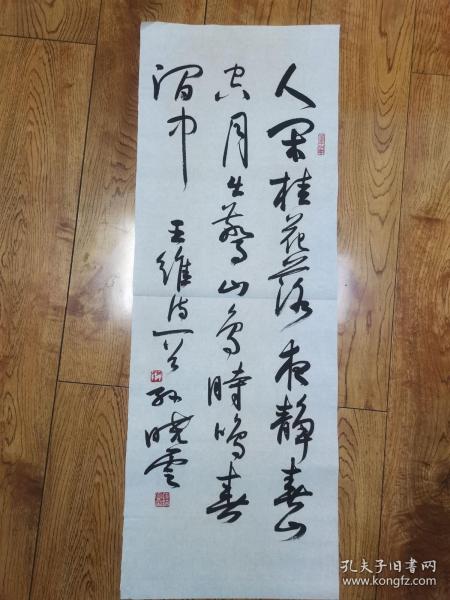 人闲桂花落夜静春山
空月出惊山鸟时鸣春
涧中
王维诗一首 孙晓云
孔夫子旧书网
www.kongfz.com